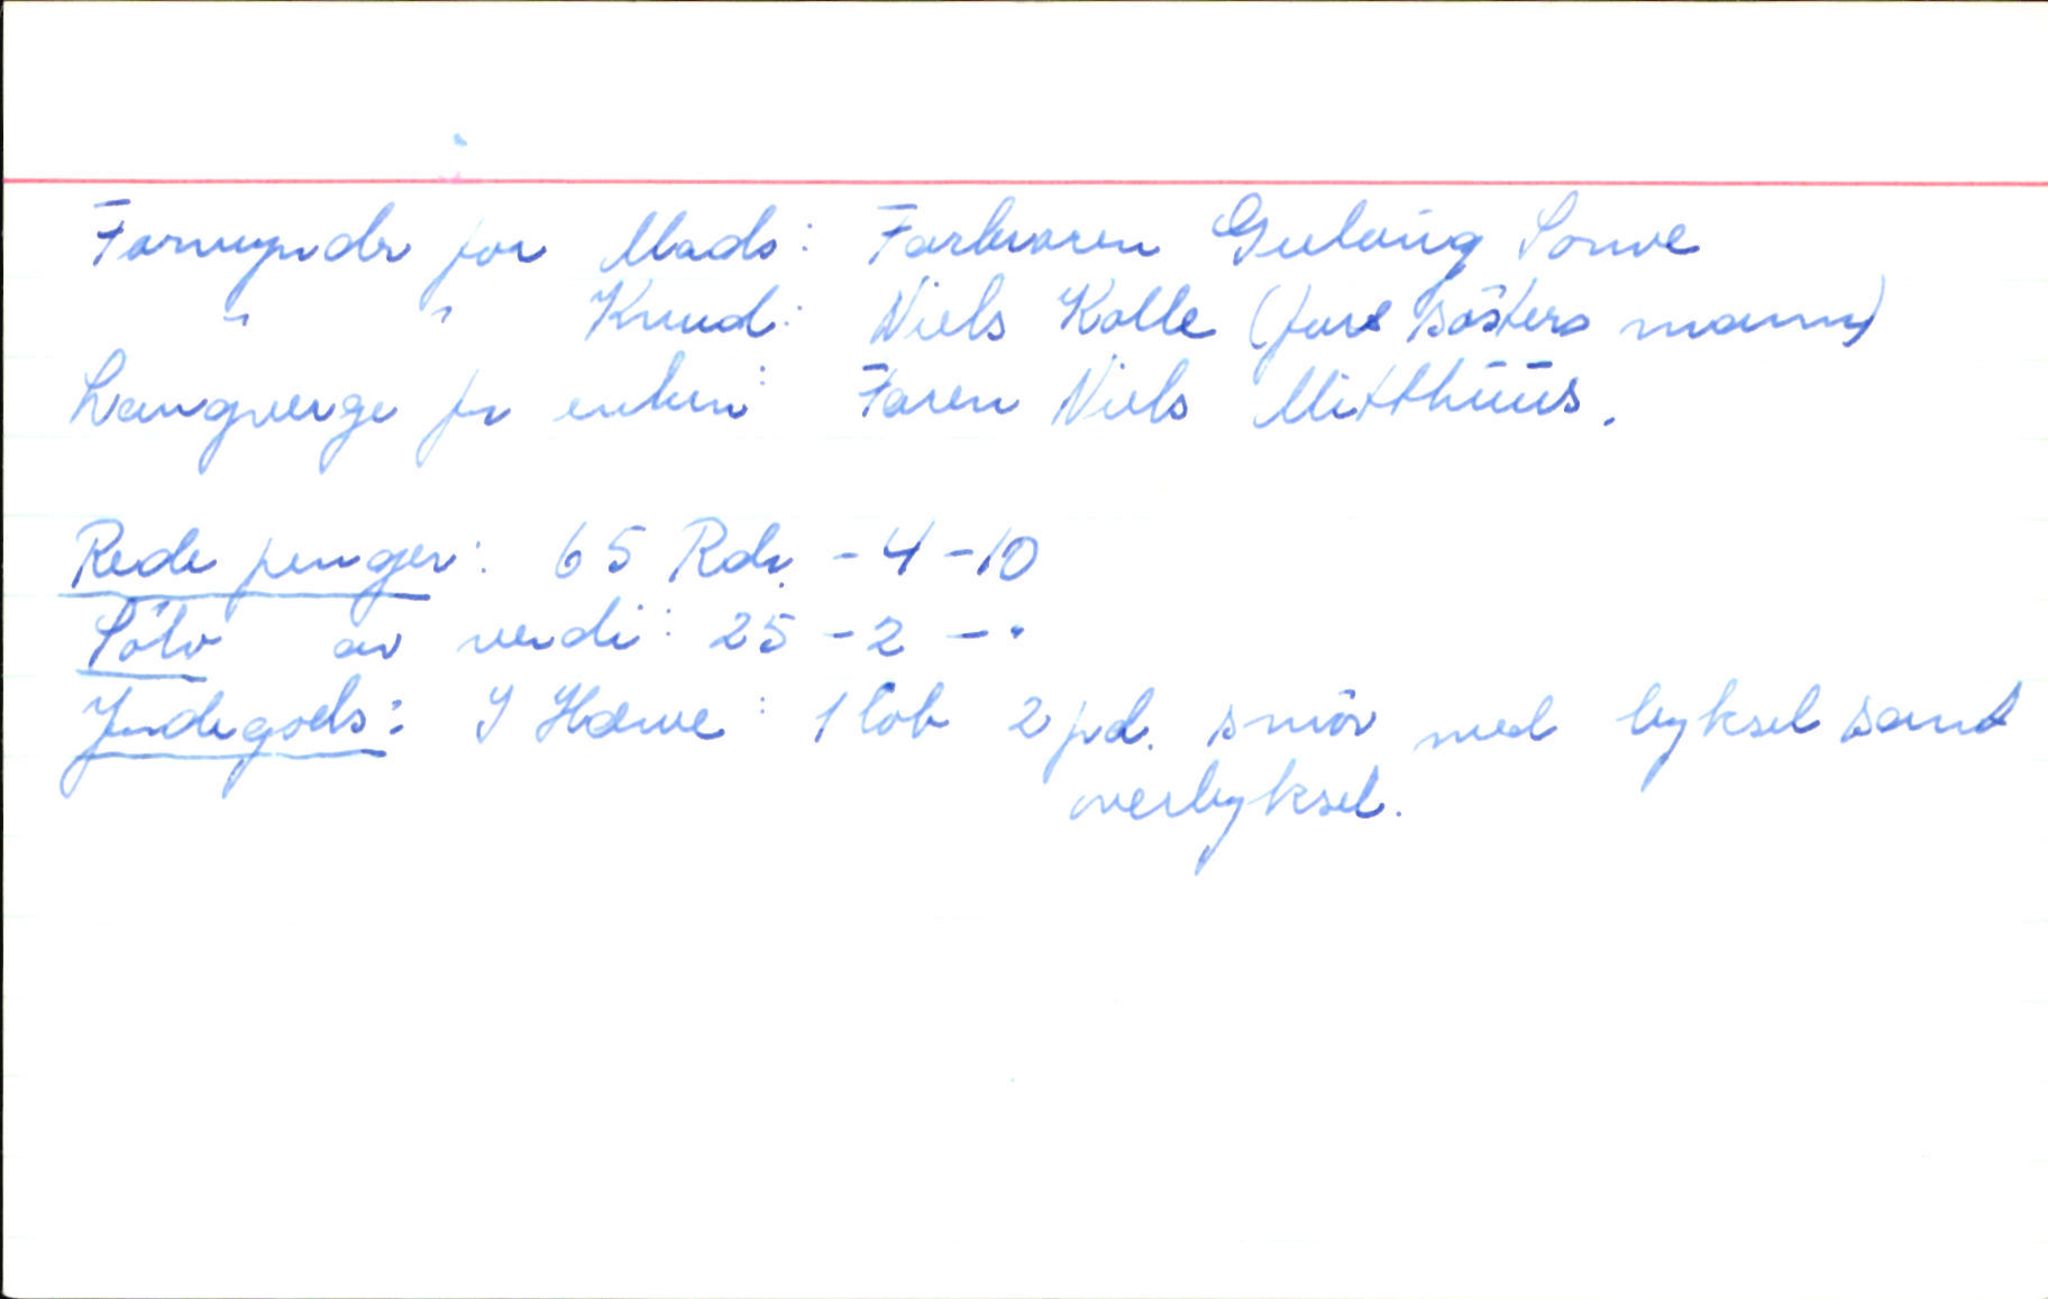 Formynder for Mads: Farbroren Gulâug Sonve
" " Knud: Niels Kolle (fars søsters mann)
Laugverge for enken: Faren Niels Mitthuus.
Rede penger: 65 Rdr. - 4 - 10
Sølv av verdi: 25 - 2 - "
Jordegods: I Hæve: 1 løb 2 pd. smør med byksel samt
overbyksel.